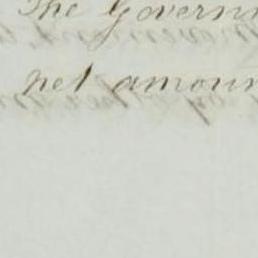 The Govern
net amoun